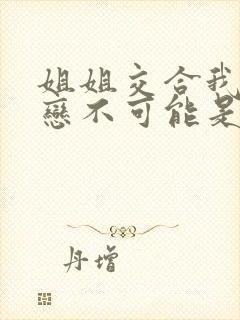 姐姐交合我
戀不可能是
丹增